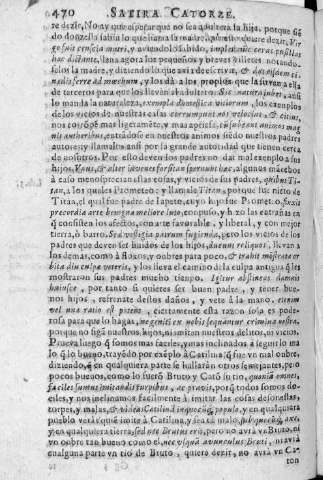 470 SATIRA CATORZE.
re dezir, No ay que espantar que no sea adultera la hija, porque siẽ
do donzella sabia lo que hazia la madre,
ge sui conscia matri, y auiendolo sabido,
hac dictante, llena agora los pequeños y breues villetes notando-
selos la madre, y diziendole que assi deue escriuir, &
y los dà a los propios que la siruen a ella
de terceros para que los lleuen al adultero. Sic natura iubet, assi
lo manda la naturaleza, exempla domestica vitiorum, los exemplos
de los vicios de nuestras casas corrumpunt nos velocius, & citius,
nos corrõpẽ mas ligeramẽte, y mas apriessa, cũ subeant animos mag
nis authoribus, entrãdose en nuestros animos siẽdo nuestros padres
autores y llamallos ansi por la grande autoridad que tienen cerca
de nosotros. Por esso deuen los padres no dar mal exemplo a sus
hijos, Vnus, & alter iuvenes forsitan spernunt hæc, algunos mãcebos
à caso menospreciã estas cosas, y vicios de sus padres, quibus Ti-
tan, a los quales Prometeo: y llamale Titan, porque fue nieto de
Titan, el qual fue padre de Iapeto, cuyo hijo fue Prometeo, finxit
præcordia arte benigna meliore luto, compuso, y hizo las entrañas en
q̃ consisten los afectos, con arte fauorable, y liberal, y con mejor
tierra, ò barro, Sed vestigia patrum fugienda, pero los vicios de los
padres que deuen ser huidos de los hijos, ducunt reliquos, lleuan a
los demas, como à floxos, y pobres para poco, & trahit monstrata or
bita diu culpæ veteris, y los lleua el camino de la culpa antigua q̃ les
mostraron sus padres mucho tiempo. Igitur abstineas damnis
huiusce, por tanto si quieres ser buen padre, y tener bue-
nos hijos, refrenate destos daños, y vete à la mano, etenim
vel una ratio est potens, ciertamente esta razon sola es pode-
rosa para que lo hagas, ne geniti ex nobis sequantur crimina nostra,
porque no sigã nuestros hijos, ni imiten nuestros delitos, ni vicios.
Prueua luego q̃ somos mas faciles, y mas inclinados à seguir lo ma
lo q̃ lo bueno, trayẽdo por exẽplo à Catilina, q̃ fue vn mal õbre,
diziendo, q̃ en qualquiera parte se hallaràn otros semejantes, pero
pocos buenos, como lo fuerõ Bruto y Catõ su tio, quoniã omnes
faciles sumus imitandis turpibus, ac prauis, porq̃ todos somos do-
ciles, y nos inclinamos facilmente à imitar las cosas desonestas,
torpes, y malas, & videas Catilinã in quocũq; populo, y en qualquiera
pueblo veràs que imite à Catilina, y sea tã malo, sub quocũq; axe,
y en qualquiera tierra, sed nec Brutus erit, pero no aurà vn Bruto, ni
vn õbre tan bueno como el, nec vsquã auunculus Bruti, ni aurà
en alguna parte vn tio de Bruto, quiero dezir, no aurà vn Ca-
ton